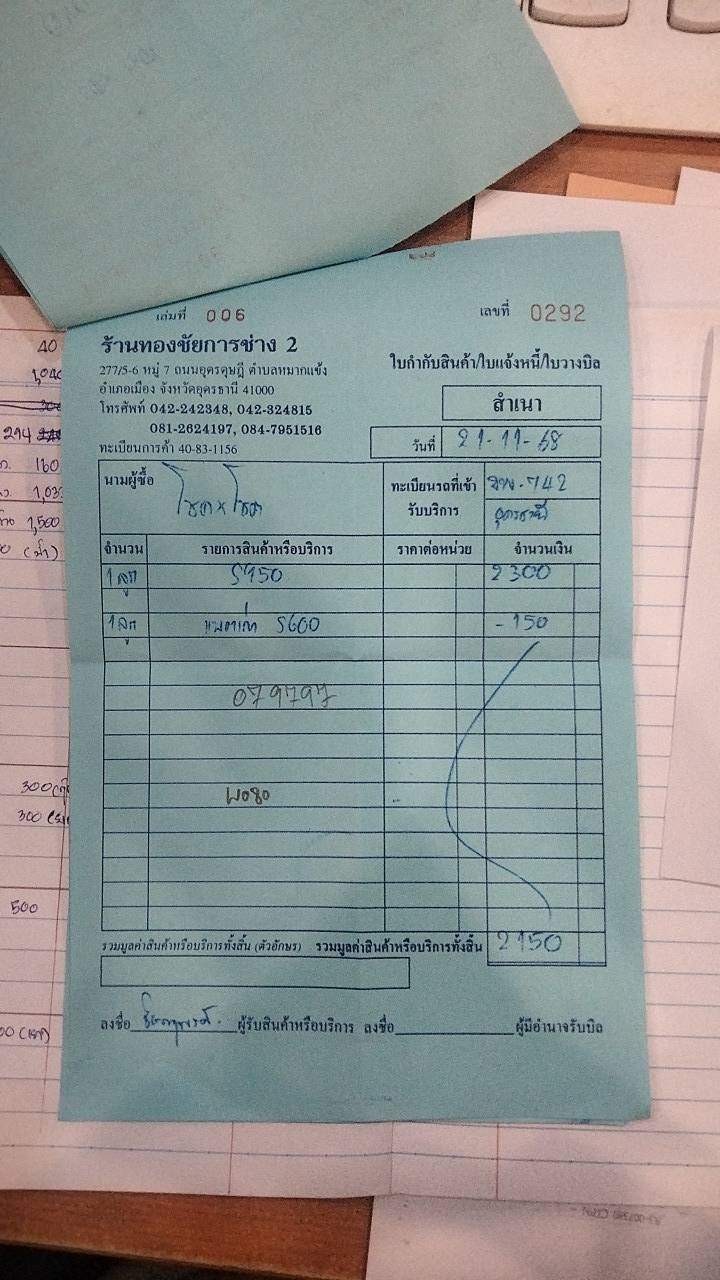 เล่มที่ 006 เลขที่ 0292
ร้านทองชัยการช่าง 2
277/5-6 หมู่ 7 ถนนอุดรดุษฎี ตำบลหมากแข้ง
อำเภอเมือง จังหวัดอุดรธานี 41000
โทรศัพท์ 042-242348, 042-324815
081-2624197, 084-7951516
ทะเบียนการค้า 40-83-1156
ใบกำกับสินค้า/ใบแจ้งหนี้/ใบวางบิล
สำเนา
วันที่ 21-11-68
นามผู้ซื้อ
ทะเบียนรถที่เข้ารับบริการ 742
อุดรธานี
จำนวน รายการสินค้าหรือบริการ ราคาต่อหน่วย จำนวนเงิน
1 ลูก S950 2300
1 ลูก แบตเก่า S600 -150
079797
รวมมูลค่าสินค้าหรือบริการทั้งสิ้น (ตัวอักษร) รวมมูลค่าสินค้าหรือบริการทั้งสิ้น 2150
ลงชื่อ ผู้รับสินค้าหรือบริการ ลงชื่อ ผู้มีอำนาจรับบิล
40
294
160
1,500
300
300
500